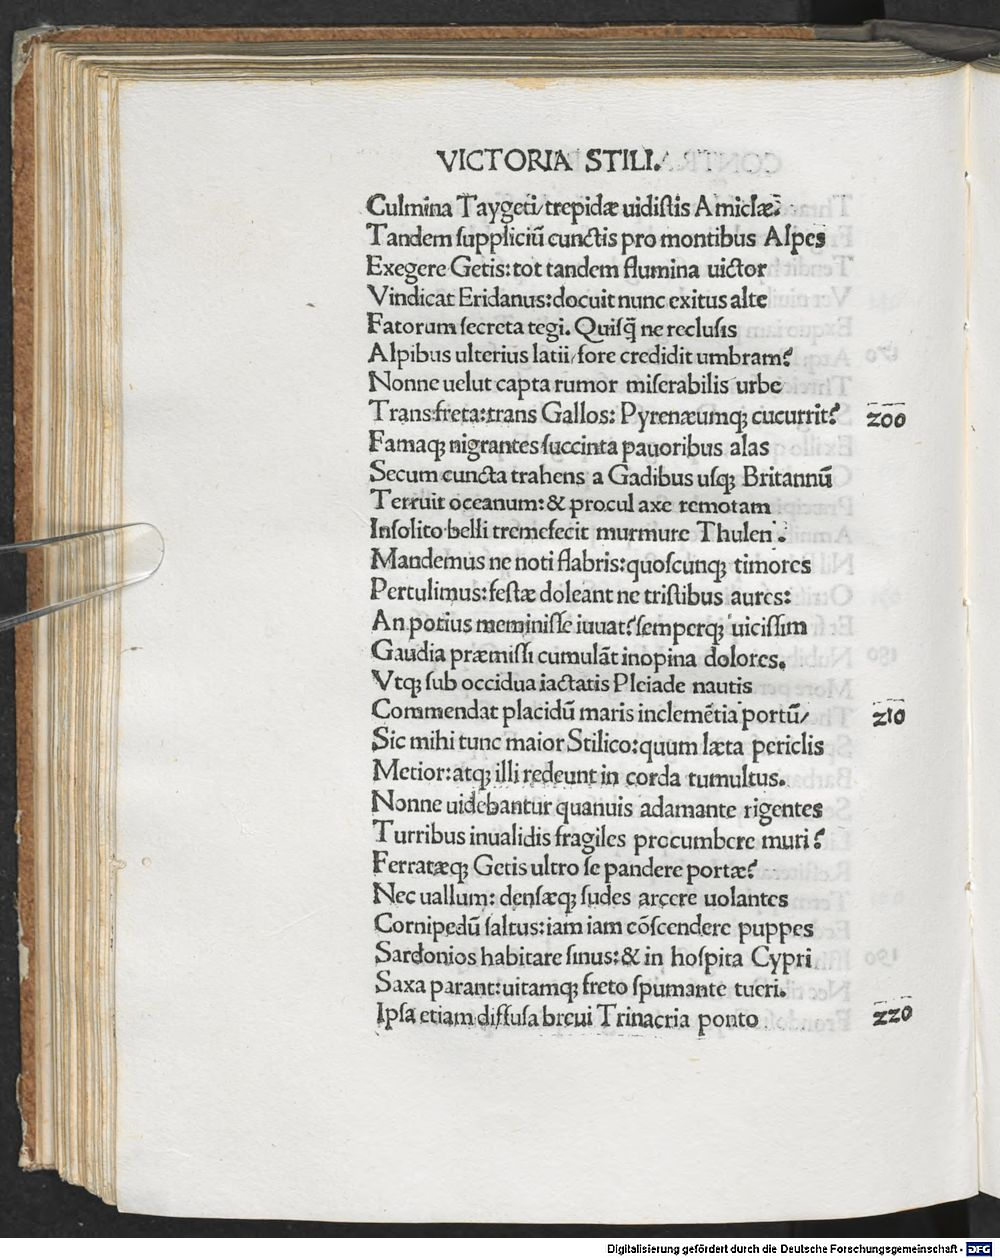 VICTORIA STILI.
Culmina Taygeti/trepidæ uidiſtis Amiclæ?
Tandem ſuppliciū cunctis pro montibus Alpes
Exegere Getis:tot tandem flumina uictor
Vindicat Eridanus:docuit nunc exitus alte
Fatorum ſecreta tegi. Quiſq̄ ne recluſis
Alpibus ulterius latii/fore credidit umbram?
Nonne uelut capta rumor miſerabilis urbe
Trans freta:trans Gallos: Pyrenæumq; cucurrit? 200
Famaq; nigrantes ſuccinta pauoribus alas
Secum cuncta trahens a Gadibus uſq; Britannū
Terruit oceanum:& procul axe remotam
Inſolito belli tremefecit murmure Thulen.
Mandemus ne noti flabris:quoſcunq; timores
Pertulimus:feſtæ doleant ne triſtibus aures:
An potius meminiſſe iuuat?ſemperq; uiciſſim
Gaudia præmiſſi cumulāt inopina dolores.
Vtq; ſub occidua iactatis Pleiade nautis
Commendat placidū maris inclemētia portū/ 210
Sic mihi tunc maior Stilico:quum læta periclis
Metior:atq; illi redeunt in corda tumultus.
Nonne uidebantur quanuis adamante rigentes
Turribus inualidis fragiles procumbere muri?
Ferratæq; Getis ultro ſe pandere portæ?
Nec uallum: denſæq; ſudes arcere uolantes
Cornipedū ſaltus:iam iam cōſcendere puppes
Sardonios habitare ſinus:& in hoſpita Cypri
Saxa parant:uitamq; freto ſpumante tueri.
Ipſa etiam diffuſa breui Trinacria ponto 220
Digitalisierung gefördert durch die Deutsche Forschungsgemeinschaft - DFG